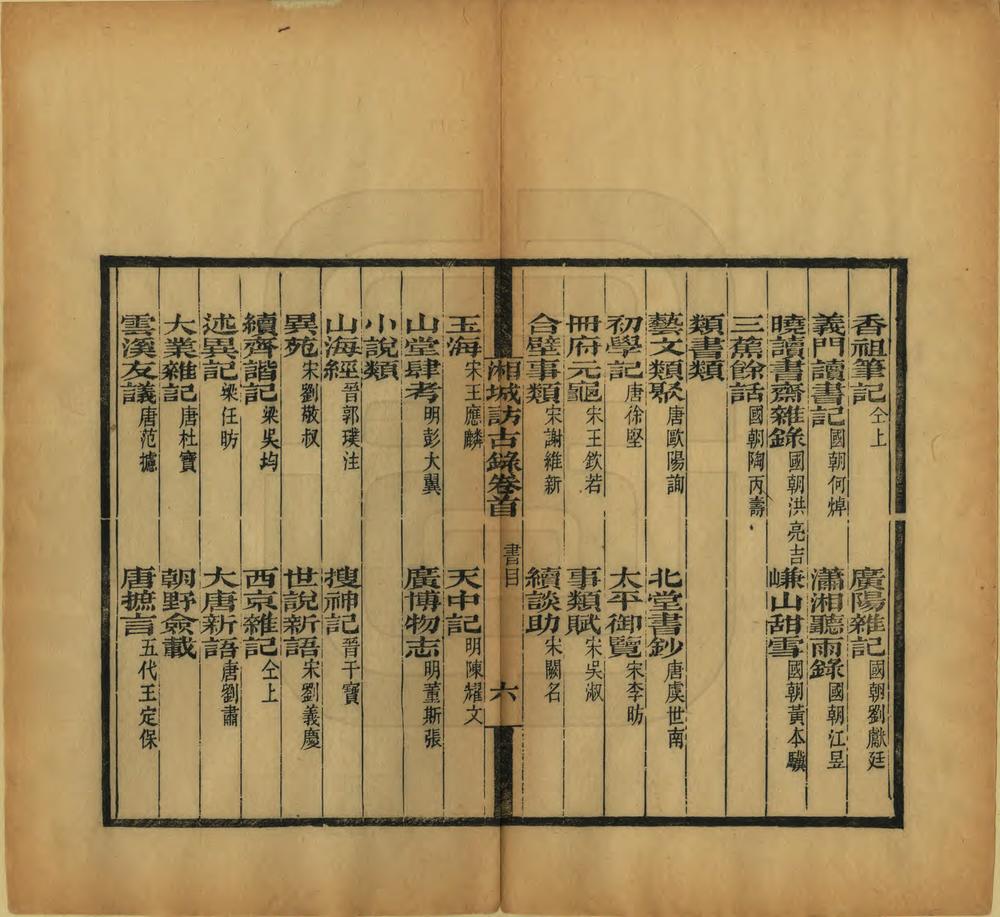 香祖筆記仝上　廣陽雜記國朝劉獻廷
義門讀書記國朝何焯　瀟湘聽雨錄國朝江昱
曉讀書齋雜錄國朝洪亮吉　嵰山甜雪國朝黃本驥
三蕉餘話國朝陶丙壽
類書類
藝文類聚唐歐陽詢　北堂書鈔唐虞世南
初學記唐徐堅　太平御覽宋李昉
冊府元龜宋王欽若　事類賦宋吳淑
合璧事類宋謝維新　續談助宋闕名
湘城訪古錄卷首　書目　六
玉海宋王應麟　天中記明陳耀文
山堂肆考明彭大翼　廣博物志明董斯張
小說類
山海經晉郭璞注　搜神記晉干寶
異苑宋劉敬叔　世說新語宋劉義慶
續齊諧記梁吳均　西京雜記仝上
述異記梁任昉　大唐新語唐劉肅
大業雜記唐杜寶　朝野僉載
雲溪友議唐范攄　唐摭言五代王定保